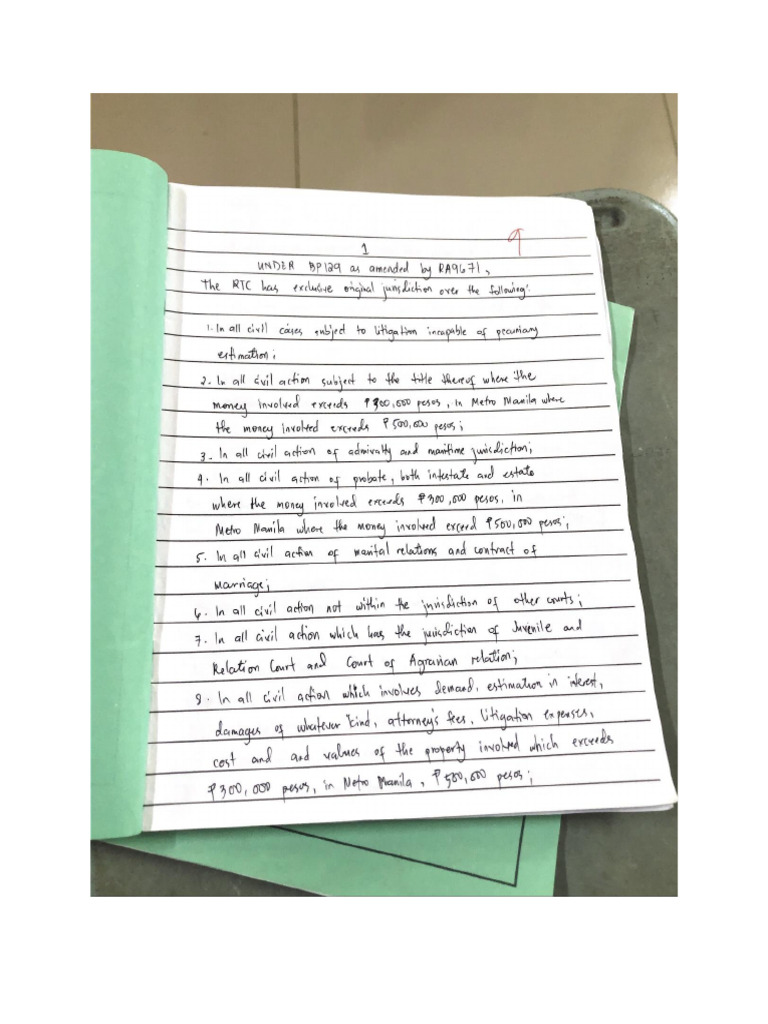 9
1
UNDER BP129 as amended by RA9671,
The RTC has exclusive original jurisdiction over the following:
1. In all civil cases subject to litigation incapable of pecuniary
estimation;
2. In all civil action subject to the title thereof where the
money involved exceeds ₱300,000 pesos, in Metro Manila where
the money involved exceeds ₱500,000 pesos;
3. In all civil action of admiralty and maritime jurisdiction;
4. In all civil action of probate, both intestate and estate
where the money involved exceeds ₱300,000 pesos, in
Metro Manila where the money involved exceed ₱500,000 pesos;
5. In all civil action of marital relations and contract of
marriage;
6. In all civil action not within the jurisdiction of other courts;
7. In all civil action which has the jurisdiction of Juvenile and
Relation Court and Court of Agrarian relation;
8. In all civil action which involves demand, estimation in interest,
damages of whatever kind, attorney's fees, litigation expenses,
cost and and values of the property involved which exceeds
₱300,000 pesos, in Metro Manila, ₱500,000 pesos;